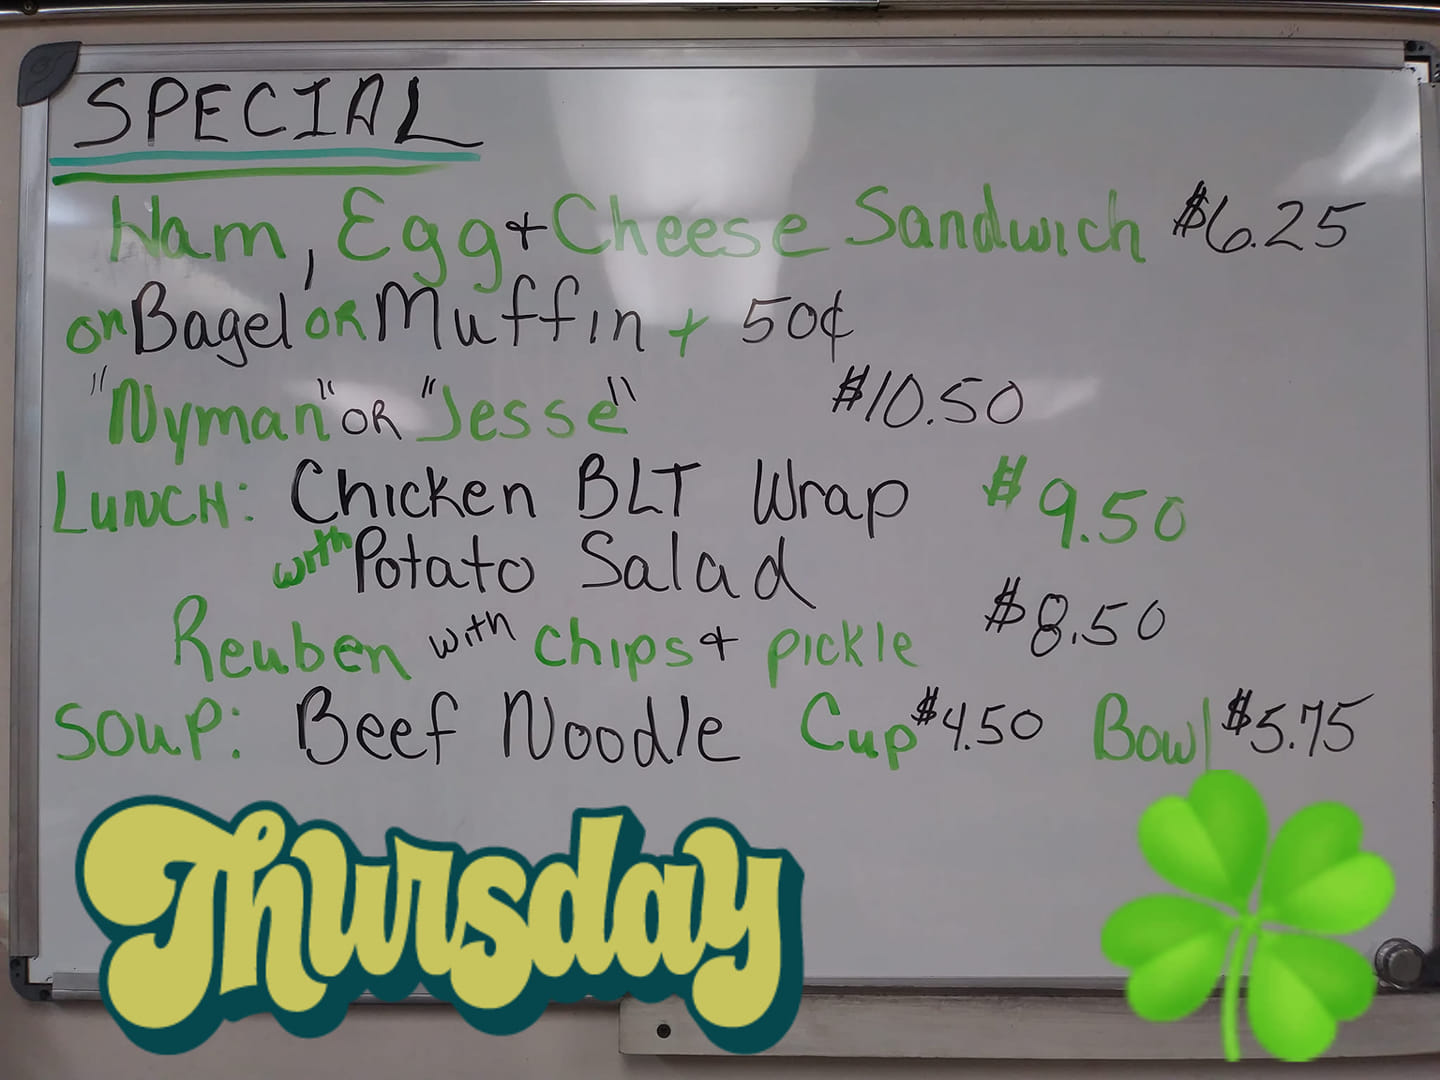 SPECIAL
Ham, Egg + Cheese Sandwich $6.25
on Bagel OR Muffin + 50¢
"Nyman" OR "Jesse" $10.50
LUNCH: Chicken BLT Wrap $9.50
with Potato Salad
Reuben with chips + pickle $8.50
SOUP: Beef Noodle Cup $4.50 Bowl $5.75
Thursday